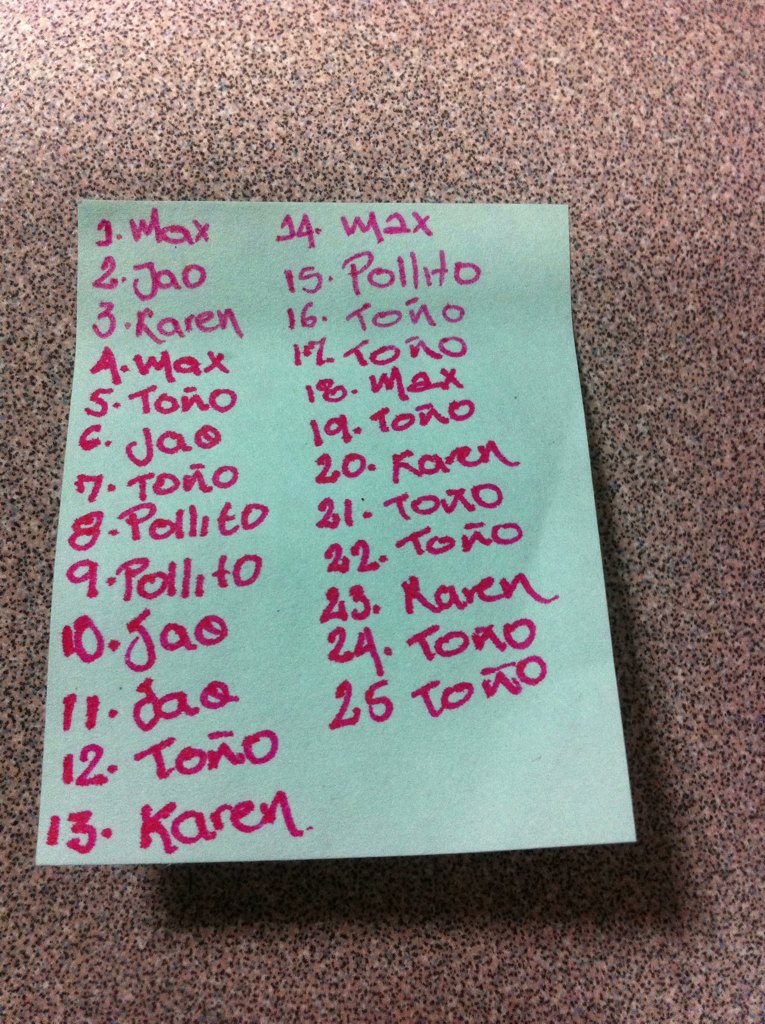 1. Max
2. Jao
3. Karen
4. Max
5. Toño
6. Jao
7. Toño
8. Pollito
9. Pollito
10. Jao
11. Jao
12. Toño
13. Karen.
14. Max
15. Pollito
16. Toño
17. Toño
18. Max
19. Toño
20. Karen
21. Toño
22. Toño
23. Karen
24. Toño
25 Toño